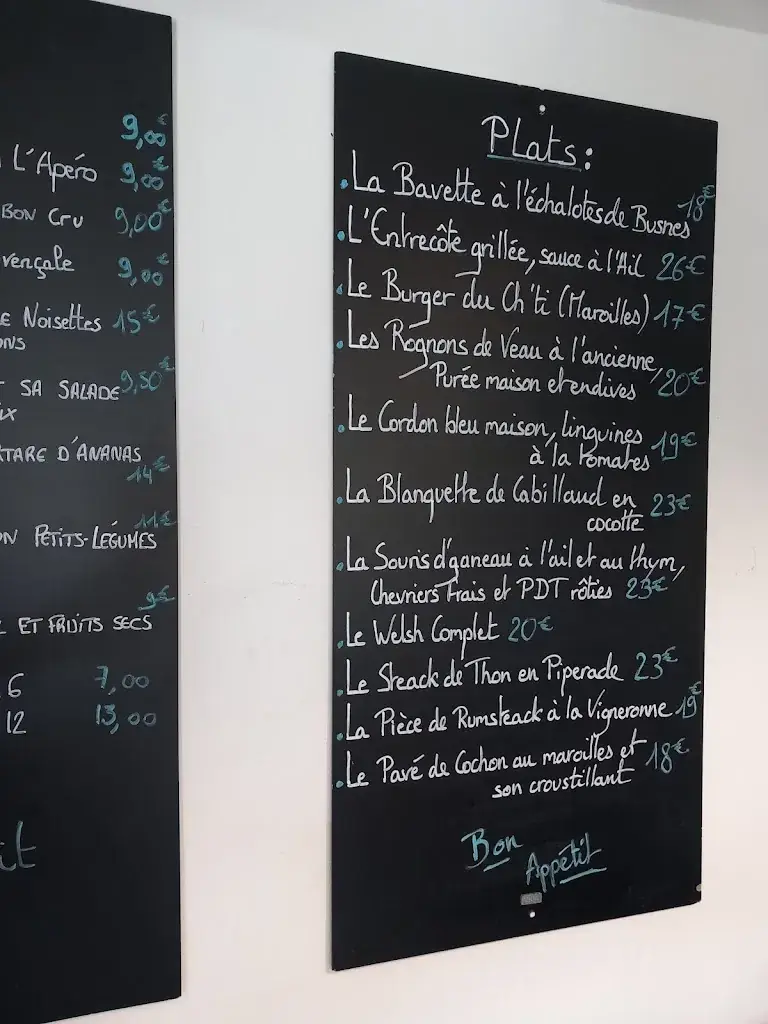 9,00€
L'Apéro 9,00€
BON CRU 9,00€
vençale 9,00€
E NOISETTES 15€
ONS
SA SALADE 9,50€
IX
TARE D'ANANAS
14€
11€
ON PETITS-LÉGUMES
9€
ET FRUITS SECS
6 7,00
12 13,00
it
Plats:
La Bavette à l'échalotes de Busnes 18€
L'Entrecôte grillée, sauce à l'Ail 26€
Le Burger du Ch'ti (Maroilles) 17€
Les Rognons de Veau à l'ancienne,
Purée maison et endives 20€
Le Cordon bleu maison, linguines
à la tomates 19€
La Blanquette de Cabillaud en
cocotte 23€
La Souris d'ganeau à l'ail et au thym,
Chevriers frais et PDT rôties 23€
Le Welsh Complet 20€
Le Steack de Thon en Piperade 23€
La Pièce de Rumsteack à la Vigneronne 19€
Le Pavé de Cochon au maroilles et
son croustillant 18€
Bon
Appétit